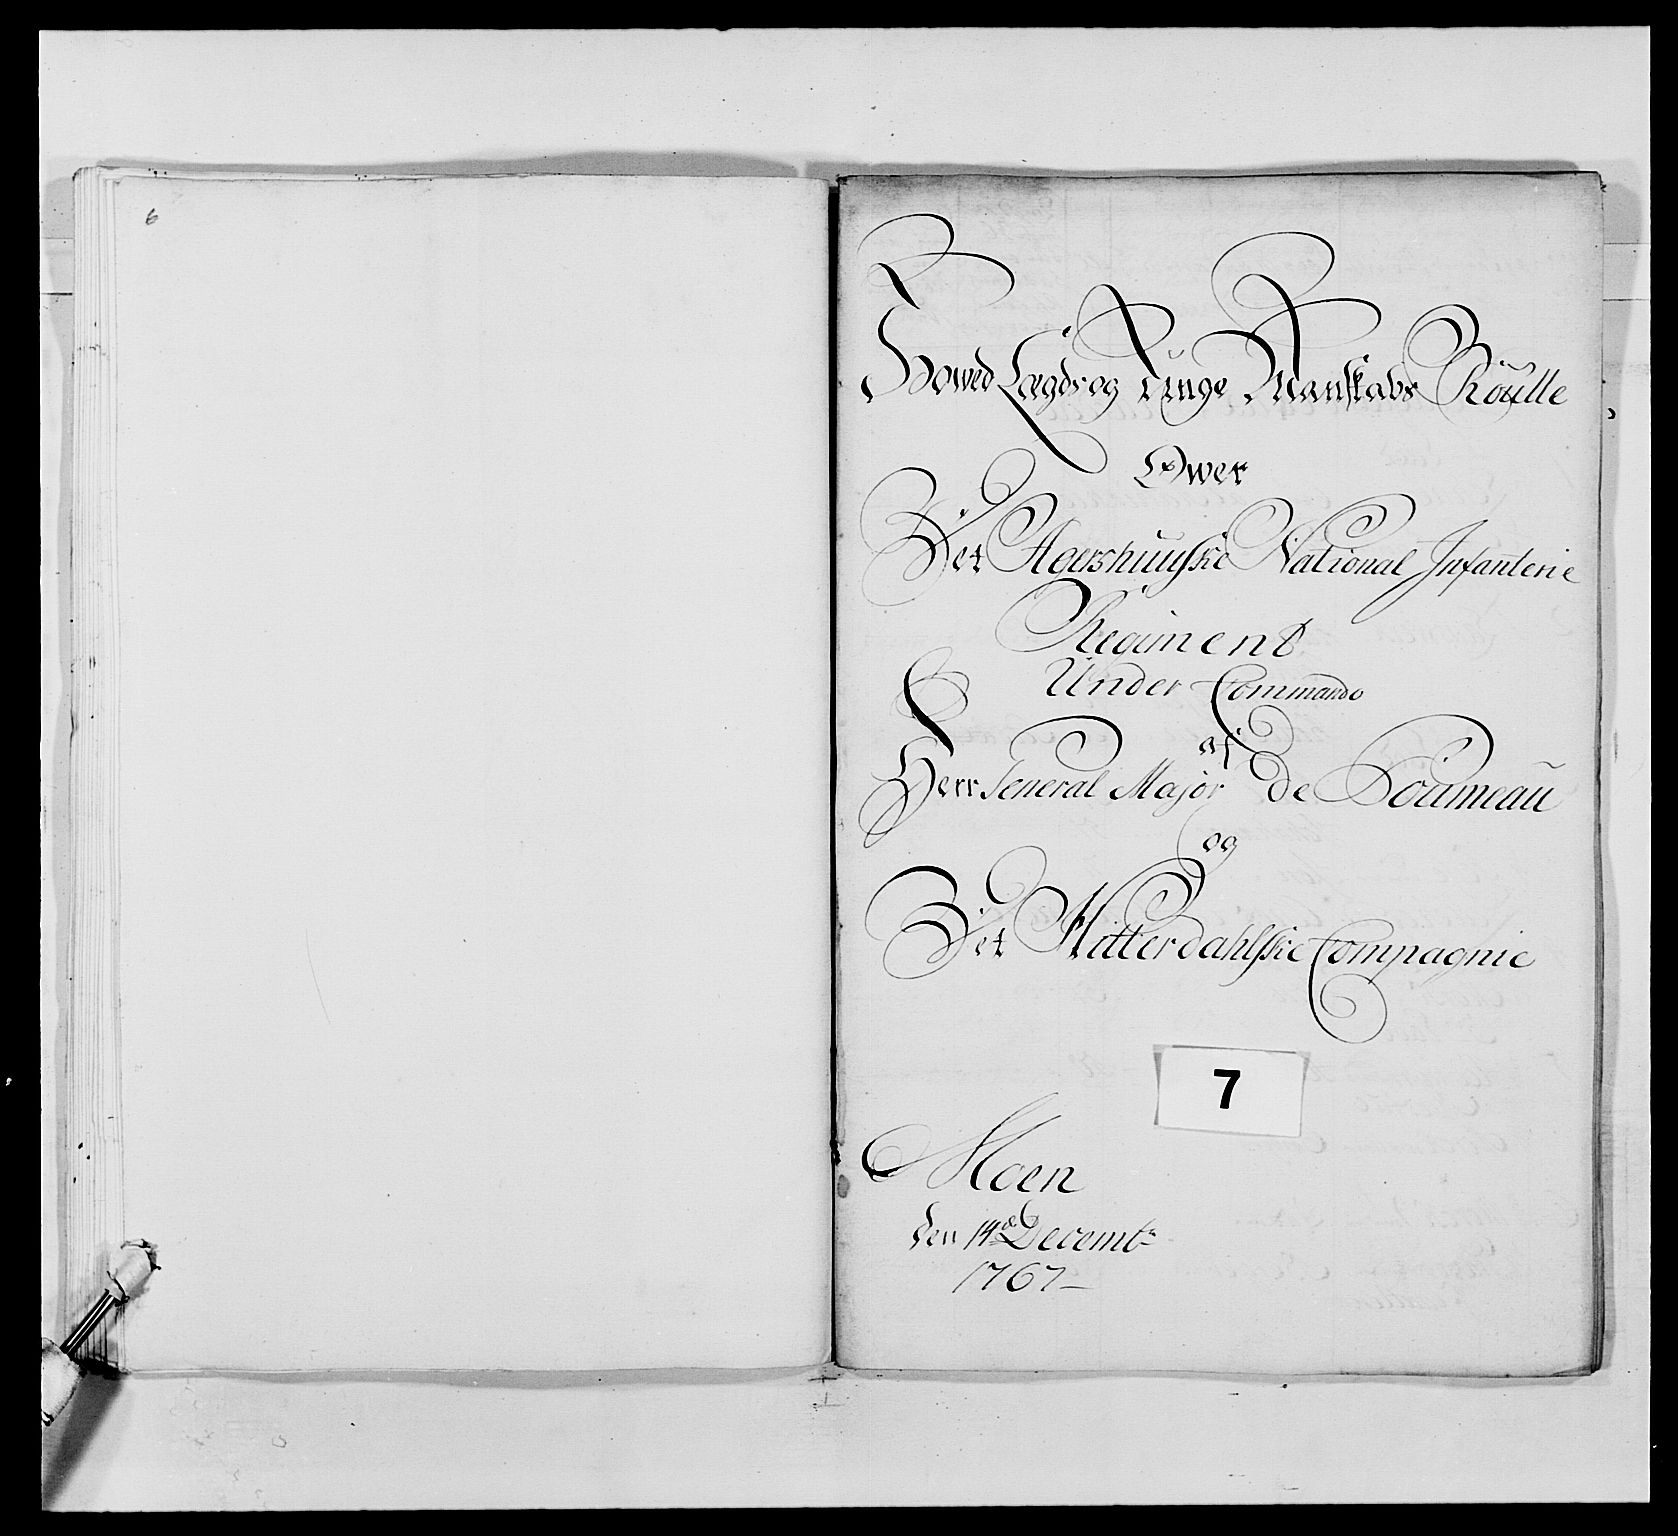 6
Howed Lægds og Unge Mandskabs Roulle
Over
Det Agershuuſke National Infanterie
Regiment
Under Commando
af
Herr General Major de Doumeau
og
Det Hitterdahlſke Compagnie
7
Moen
Den 14de Decembr
1767